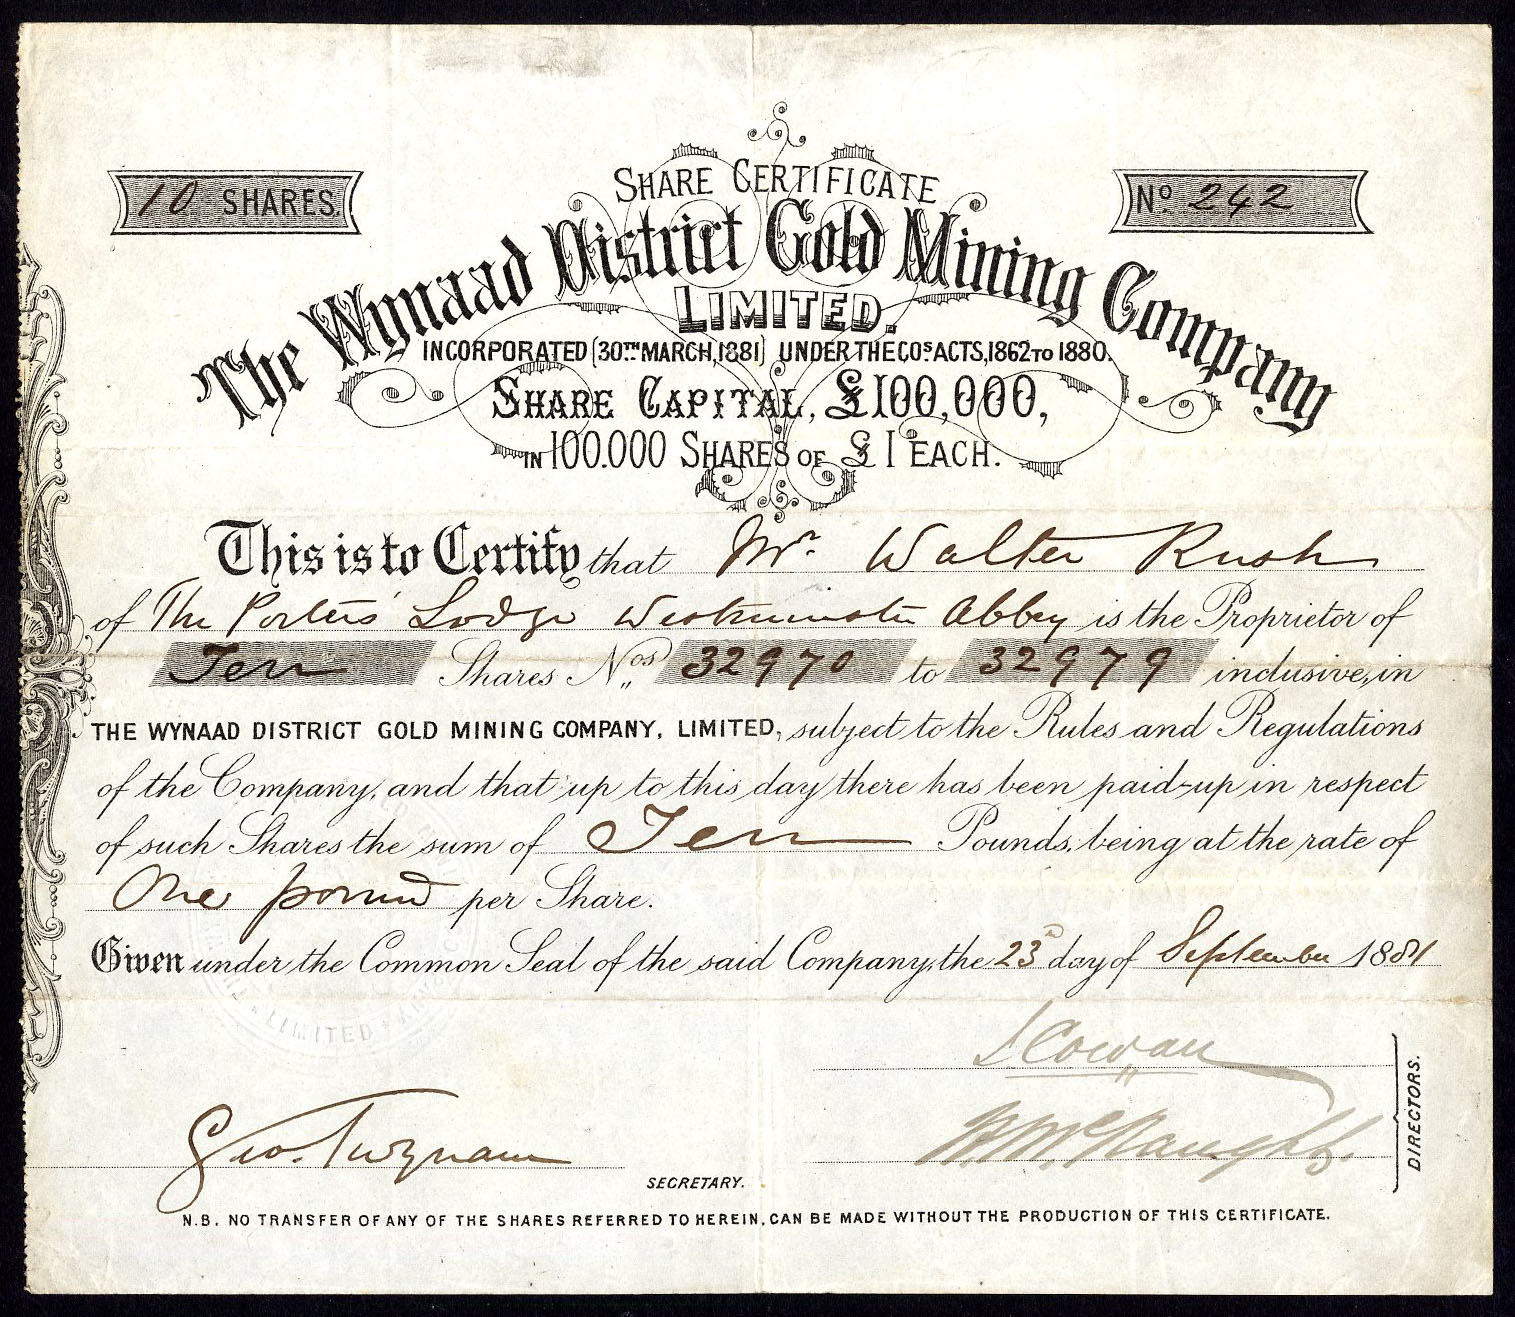 10 SHARES.
No. 242
SHARE CERTIFICATE
The Wynaad District Gold Mining Company
LIMITED.
INCORPORATED (30TH MARCH, 1881) UNDER THE COS ACTS, 1862 TO 1880.
SHARE CAPITAL, £100,000,
IN 100.000 SHARES OF £1 EACH.
This is to Certify that Mr. Walter Rush
of The Porters' Lodge Westminster Abbey is the Proprietor of
Ten Shares Nos 32970 to 32979 inclusive, in
THE WYNAAD DISTRICT GOLD MINING COMPANY, LIMITED, subject to the Rules and Regulations
of the Company, and that up to this day there has been paid-up in respect
of such Shares the sum of Ten Pounds, being at the rate of
One pound per Share.
Given under the Common Seal of the said Company, the 23d day of September 1881
LIMITED
Cowan
Geo. Twynam
McNaught
DIRECTORS.
SECRETARY.
N.B. NO TRANSFER OF ANY OF THE SHARES REFERRED TO HEREIN, CAN BE MADE WITHOUT THE PRODUCTION OF THIS CERTIFICATE.